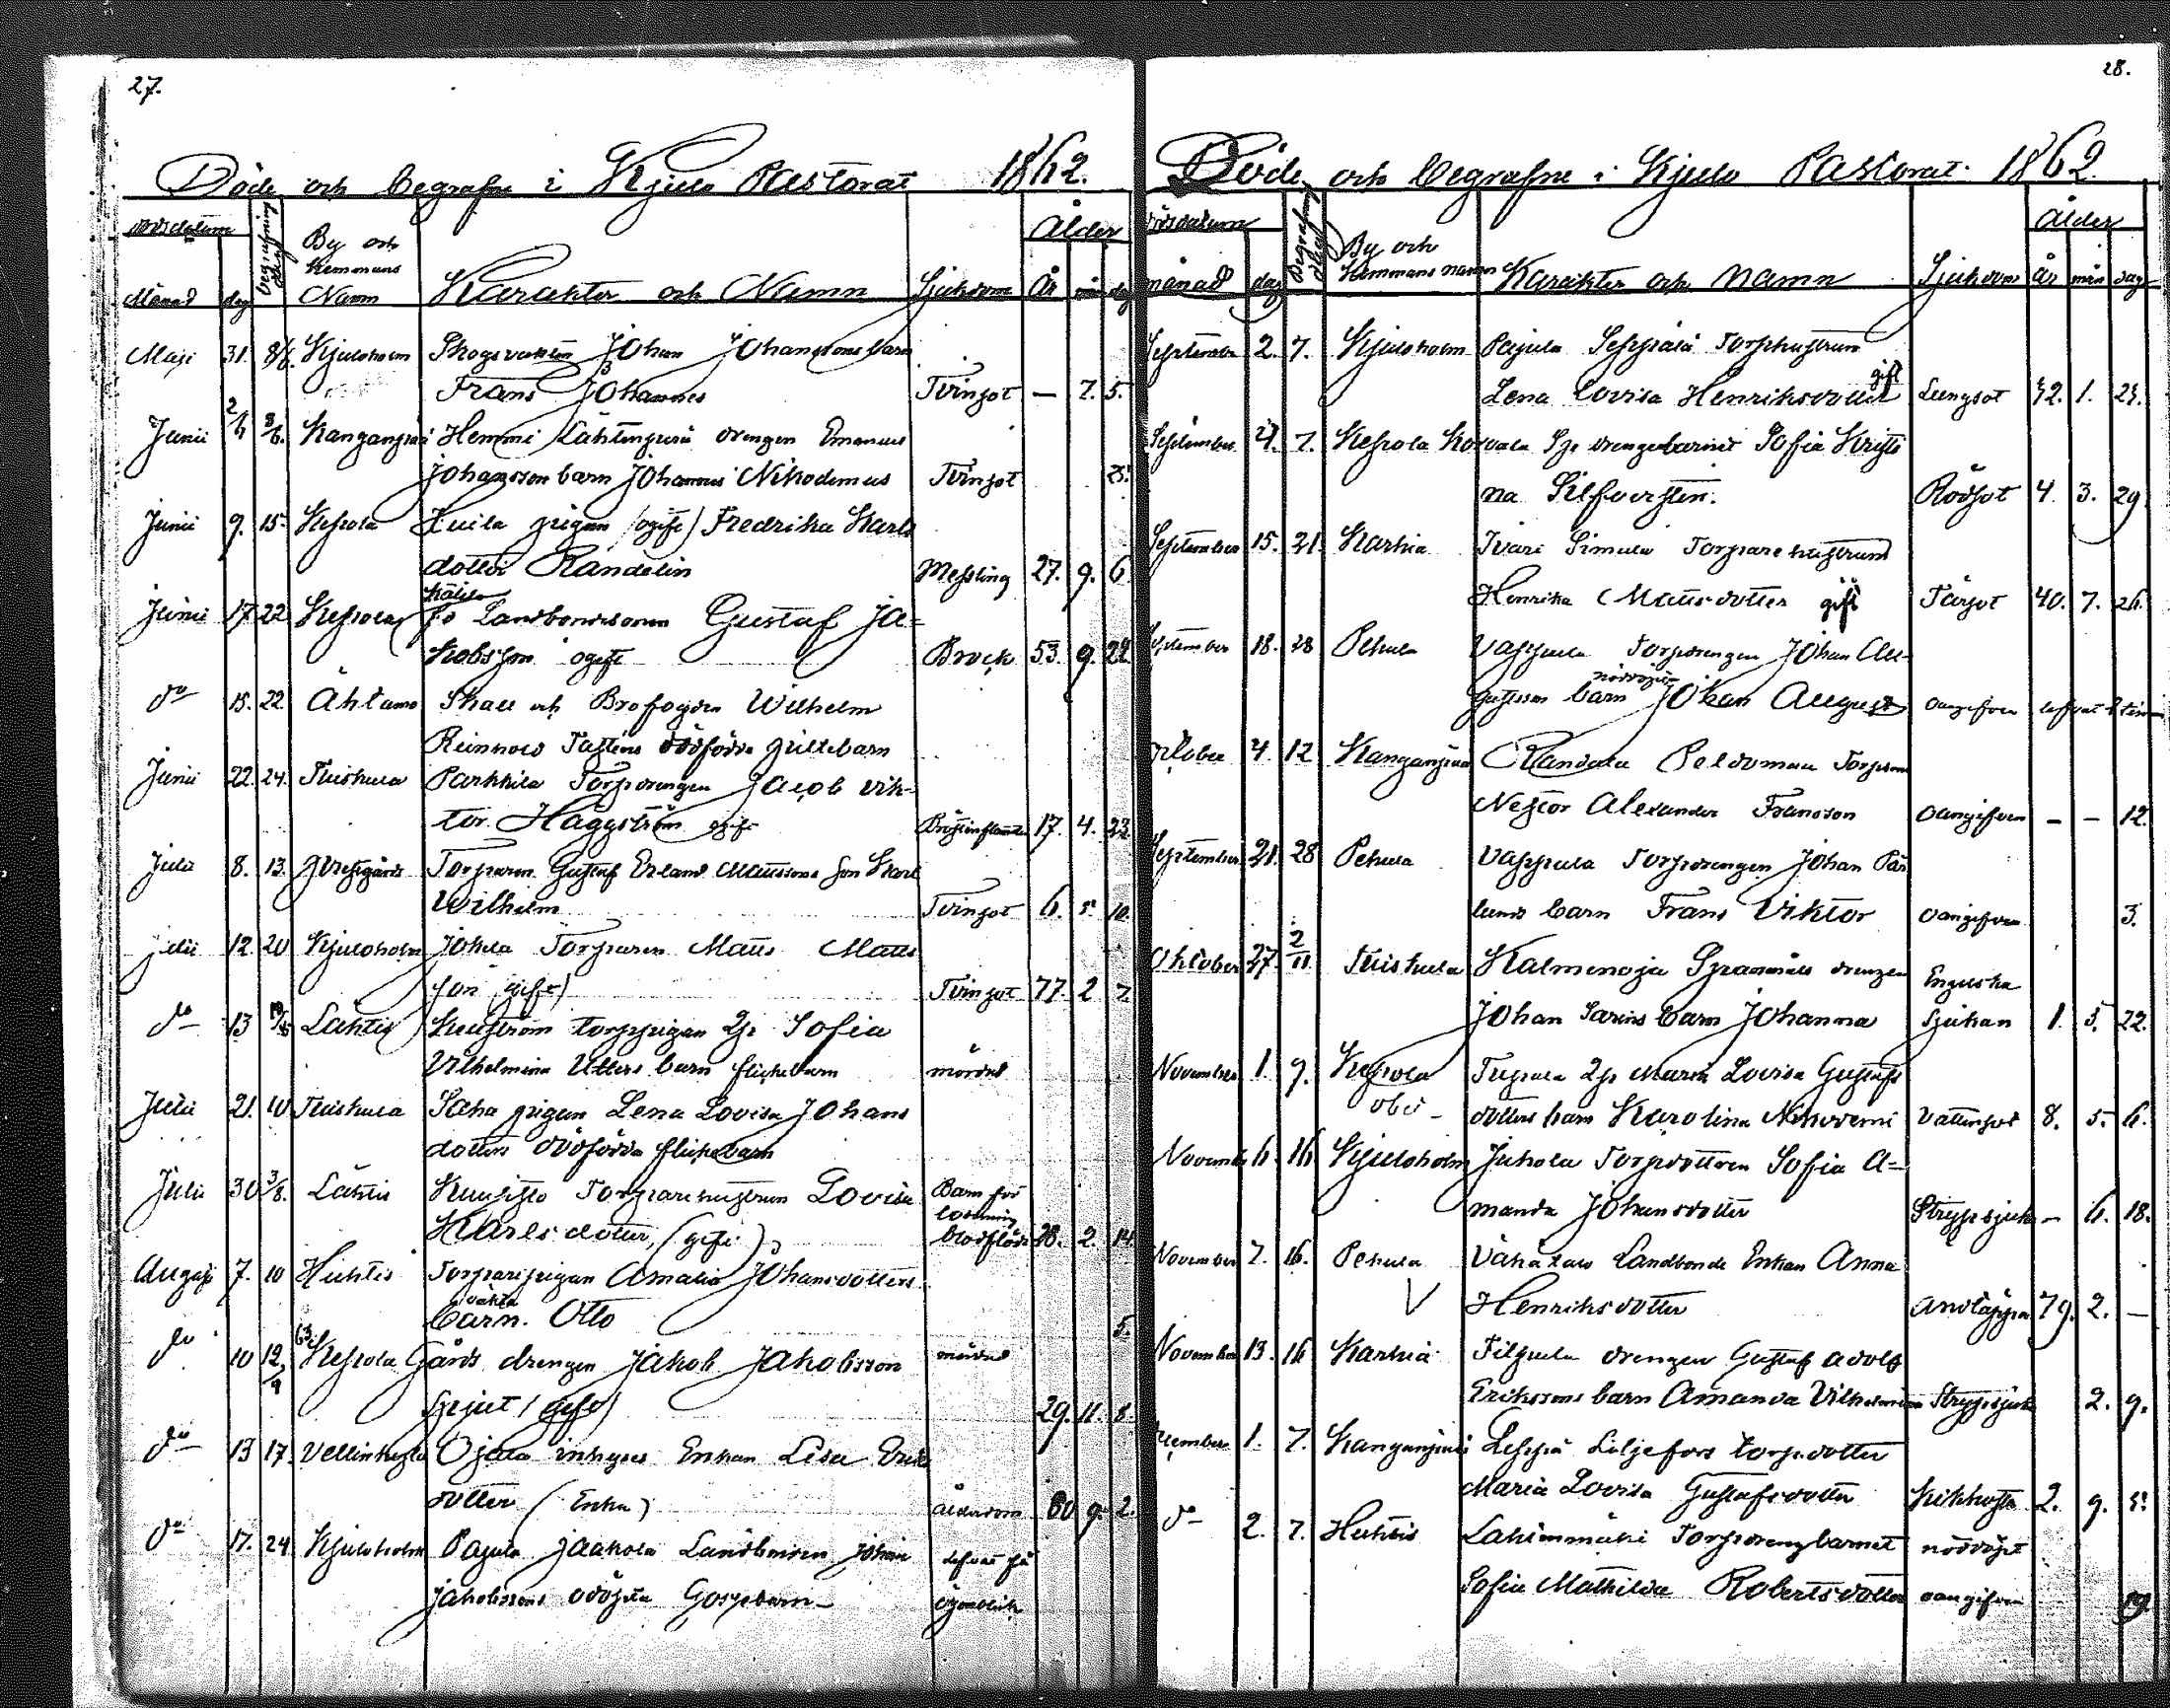 27.
Döde och begrafne i Kjulo Pastorat 1862.
Dödsdatum
Begrafningsdag
By och Hemmans Namn
Karakter och Namn
Sjukdom
Ålder
Månad dag År mån dag
Maji 31. 8/6. Kjuloholm Skogsvakten Johan Johanssons barn
Frans Johannes Tvinsot — 7. 5.
Junii 2/6 8/6. Kanganpää Hemmi Lähtenperä drengen Emanuel
Johansson barn Johannes Nikodemus Tvinsot 25.
Junii 9. 15. Kepola Luila pigan (ogift) Fredrika Karls
dotter Randelin Messling 27. 9. 6
Junii 17 22 Kepola Landbondsonen Gustaf Ja=
kobsson ogift Brock 53. 9. 22
do 15. 22 Ähtamo Skall och Brofogden Wilhelm
Reinhold dödfödda barn
Junii 22. 24. Tuiskula Parkkila Torpdrengen Jacob Vik-
tor Häggström ogift Bröstinflamm 17. 4. 22.
Julii 8. 13. Prestgårds Torparen Gustaf Erland Mattssons son Karl
Wilhelm Tvinsot 6. 5 10.
Julii 12. 20 Kjuloholm Johela Torparen Matts Matts
son (gift) Tvinsot 77. 2 7.
do 13 Lähtis torppigan Sofia
Vilhelmina Utters barn flickebarn mördad
Julii 21. 10 Tuiskula Saha pigan Lena Lovisa Johans
dotters dödfödda flickebarn
Julii 30 3/8. Lähtis Kuusisto Torparehustrun Lovisa Barn för
lossning
Karlsdotter, (gift) blodflöde 28. 2. 14.
Augusti 7. 10 Huhtis Torparepigan Amalia Johansdotters
oäkta
barn. Otto 5.
do 10 12/9 Kepola Gårds drengen Jakob Jakobsson mördad
(gift) 29. 11. 8.
do 13 17. Vellinkylä Ojala inhyses Enkan Lisa Eriks
dotter (Enka) Ålderdom 80 9. 2.
do 17. 24 Kjuloholm Pajula Jaakola Landbonden Johan lefvat få
Jakobssons odöpta Gossebarn ögonblick
28.
Döde och begrafne i Kjulo Pastorat. 1862.
Dödsdatum
Begrafningsdag
By och
Hemmans namn
Karakter och Namn
Sjukdom
Ålder
månad dag år mån dag
September 2. 7. Kjuloholm Pajula Seppälä Torphustrun
Lena Lovisa Henriksdotter gift Lungsot 42. 1. 24.
September 4. 7. Kepola Korvala drengebarnet Sofia Kristi
na Silfversten. Rödsot 4. 3. 29.
September 15. 21. Karhia Ivari Simula Torparehustrun
Henrika Mattsdotter gift Tärsot 40. 7. 26.
September 18. 28 Pehula Vappula Torpdrengen Johan Au-
nöddöpt
gustsson barn Johan August oangifven lefvat 2 tim
October 4. 12 Kanganpää Randala Peldoman Torpson
Nestor Alexander Fransson oangifven — — 12.
September 21. 28 Pehula Vappula Torpdrengen Johan Pär
lunds barn Frans Viktor oangifven 3.
Oktober 27. 2/11 Tuiskula Kalmenoja drengen Engelska
Johan Sarins barn Johanna sjukan 1. 5. 22.
November 1. 9. Kepola Tupala Maria Lovisa Gustafs
dotters barn Karolina Nikodemi Vattusot 8. 5. 6.
November 6. 16 Kjuloholm Juhola Torpdottren Sofia A=
manda Johansdotter Strypsjuka — 6. 18.
November 7. 16. Pehula Vähätalo Landbonde Enkan Anna
V Henriksdotter andtäppa 79. 2. —
November 13. 16 Karhia Filpula drengen Gustaf Adolf
Erikssons barn Amanda Vilhelmina Strypsjuka 2. 9.
December 1. 7. Kanganpää Leppä Liljefors torpdotter
Maria Lovisa Gustafsdotter Kikhosta 2. 9. 5.
do 2. 7. Huhtis Lahinmäki Torpdrengbarnet nöddöpt
Sofia Mathilda Robertsdotter oangifven 19.